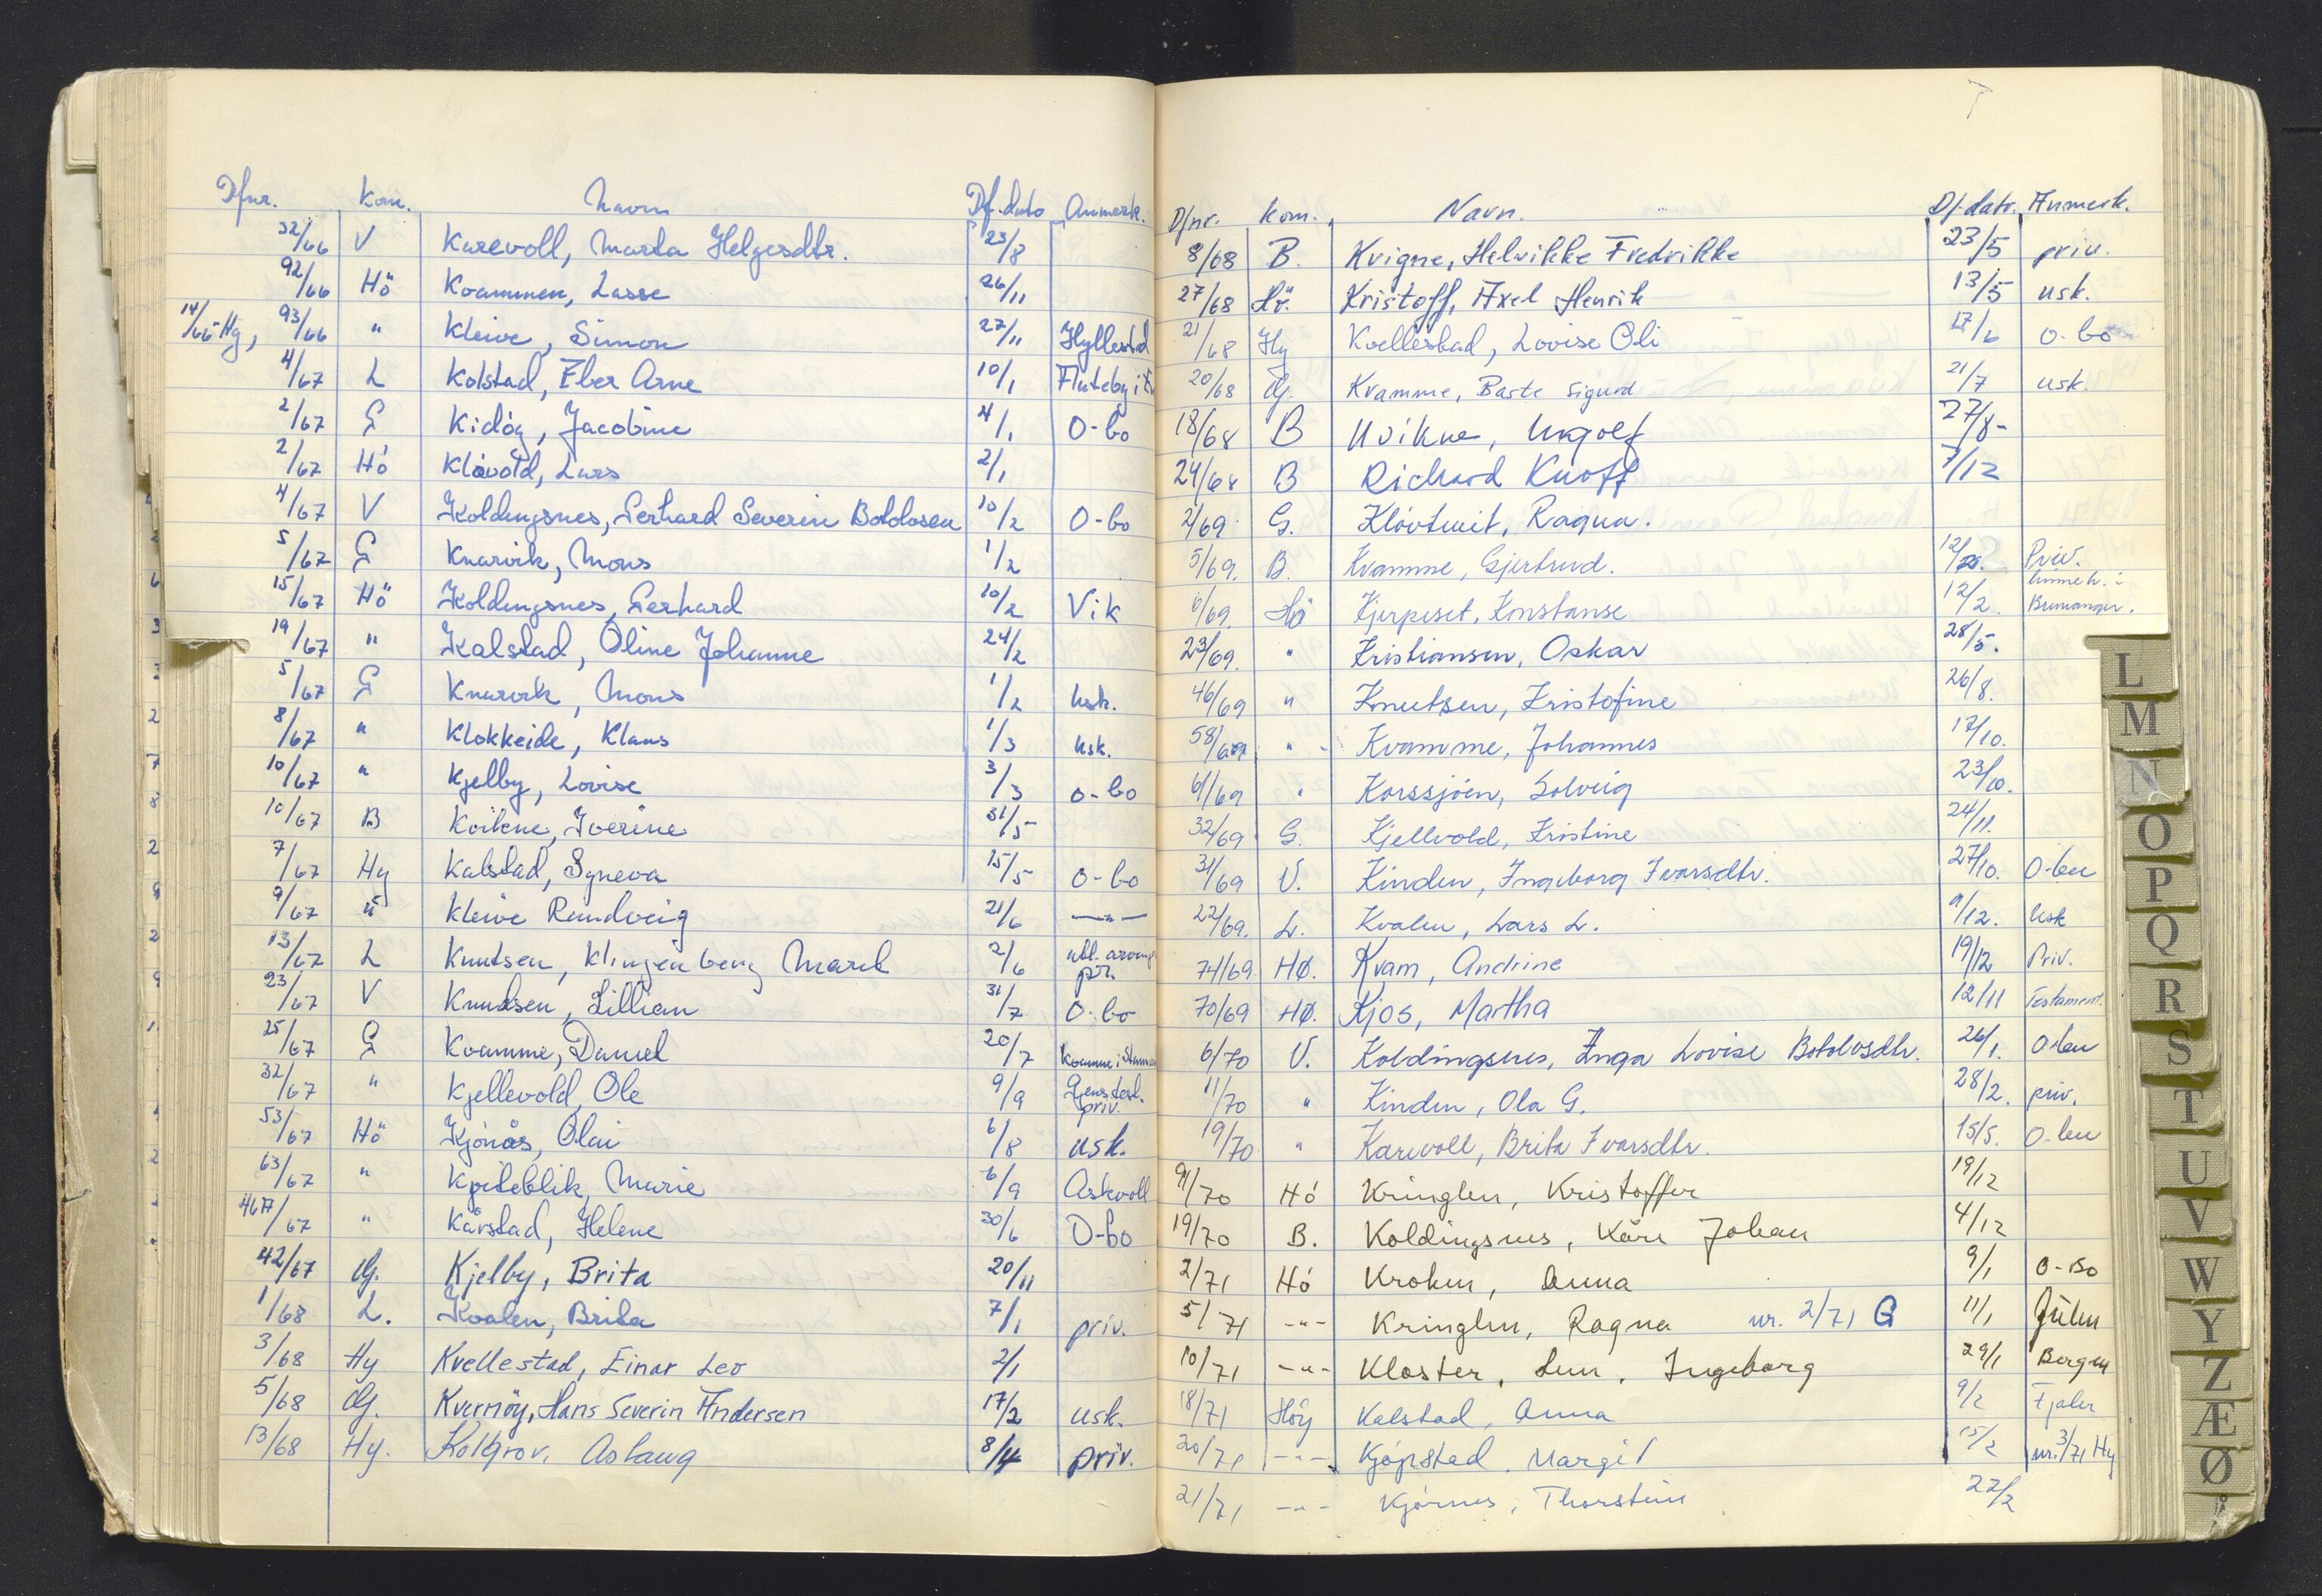 Dfnr. Kom. Navn Df.dato Anmerk.
32/66 V Karevoll, Marta Helgesdtr. 23/8
92/66 Hö Kvammen, Lasse 26/11
14/66 Hy, 93/66 " Kleive, Simon 27/11 Hyllestad
4/67 L Kolstad, Eber Arne 10/1
2/67 G Kidøy, Jacobine 4/1 O-bo
2/67 Hö Klåvold, Lars 2/1
4/67 V Koldingsnes, Gerhard Severin Botolvsen 10/2 O-bo
5/67 G Knarvik, Mons 1/2
15/67 Hö Koldingsnes, Gerhard 10/2 Vik
19/67 " Kalstad, Oline Johanne 24/2
5/67 G Knarvik, Mons 1/2 usk.
8/67 " Klokkeide, Klaus 1/3 usk.
10/67 " Kjelby, Lovise 3/3 o-bo
10/67 B Kvikne, Iverine 31/5
7/67 Hy Kalstad, Synneva 15/5 o-bo
9/67 " Kleive Randveig 21/6 —"—
13/67 L Knutsen, Klingenberg Marck 2/6 pr.
23/67 V Knudsen, Lillian 31/7 O-bo
25/67 G Kvamme, Daniel 20/7 Kvamme i
32/67 " Kjellevold, Ole 9/9 priv.
53/67 Hö Kjönås, Olai 6/8 usk.
63/67 " Marie 6/9 Askvoll
46A/67 " Kårstad, Helene 30/6 O-bo
42/67 G. Kjelby, Brita 20/11
1/68 L. Kvalen, Brita 7/1 priv.
3/68 Hy Kvellestad, Einar Leo 2/1
5/68 G. Kvernöy, Hans Severin Andersen 17/2 usk.
13/68 Hy. Kolgrov, Aslaug 8/4 priv.
Dfnr. Kom. Navn. Df-dato. Anmerk.
8/68 B. Kvigne, Helvikke Fredrikke 23/5 priv.
27/68 Hö. Kristoff, Axel Henrik 13/5 usk.
21/68 Hy Kvellestad, Lovise Oli 17/6 o-bo
20/68 G. Kvamme, Baste Sigurd 21/7 usk.
18/68 B Kvikne, Ingolf 27/8-
24/68 B Richard Knoff 7/12
2/69 G. Klövtveit, Ragna.
5/69. B. Kvamme, Gjertrud. Priv.
6/69. Hö Kjerpeset, Konstanse 12/2. Bremanger.
23/69. " Kristiansen, Oskar 28/5.
46/69 " Knutsen, Kristofine 26/8.
58/69 " - Kvamme, Johannes 17/10.
61/69 " Korssjöen, Solveig 23/10.
32/69 G. Kjellvold, Kristine 24/11.
31/69 V. Kinden, Ingeborg Ivarsdtr. 27/10. O-beu
22/69. L. Kvalen, Lars L. 9/12. Usk
74/69 HØ. Kvam, Andrine 19/12 Priv.
70/69 HØ. Kjos, Martha 12/11 Testament.
6/70 V. Koldingsnes, Inga Lovise Botolvsdtr. 26/1. O-beu
11/70 " Kinden, Ola G. 28/2. priv.
19/70 " Karevoll, Brita Ivarsdtr. 15/5. O-beu
91/70 Hö Kringlen, Kristoffer 19/12
19/70 B. Koldingsnes, Kåre Johan 4/12
2/71 Hö Kroken, Anna 9/1 O-Bo
5/71 -"- Kringlen, Ragna nr. 2/71 G 11/1 Gulen
10/71 -"- Kloster, Ingeborg 29/1 Bergen
18/71 Höy Kalstad, Anna 9/2 Fjaler
20/71 -"- Kjöpstad, Margit 15/2 nr. 3/71 Hy
21/71 -"- Kjörnes, Thorstein 22/2
L
M
N
O
P
Q
R
S
T
U
V
W
Y
Z
Æ
Ø